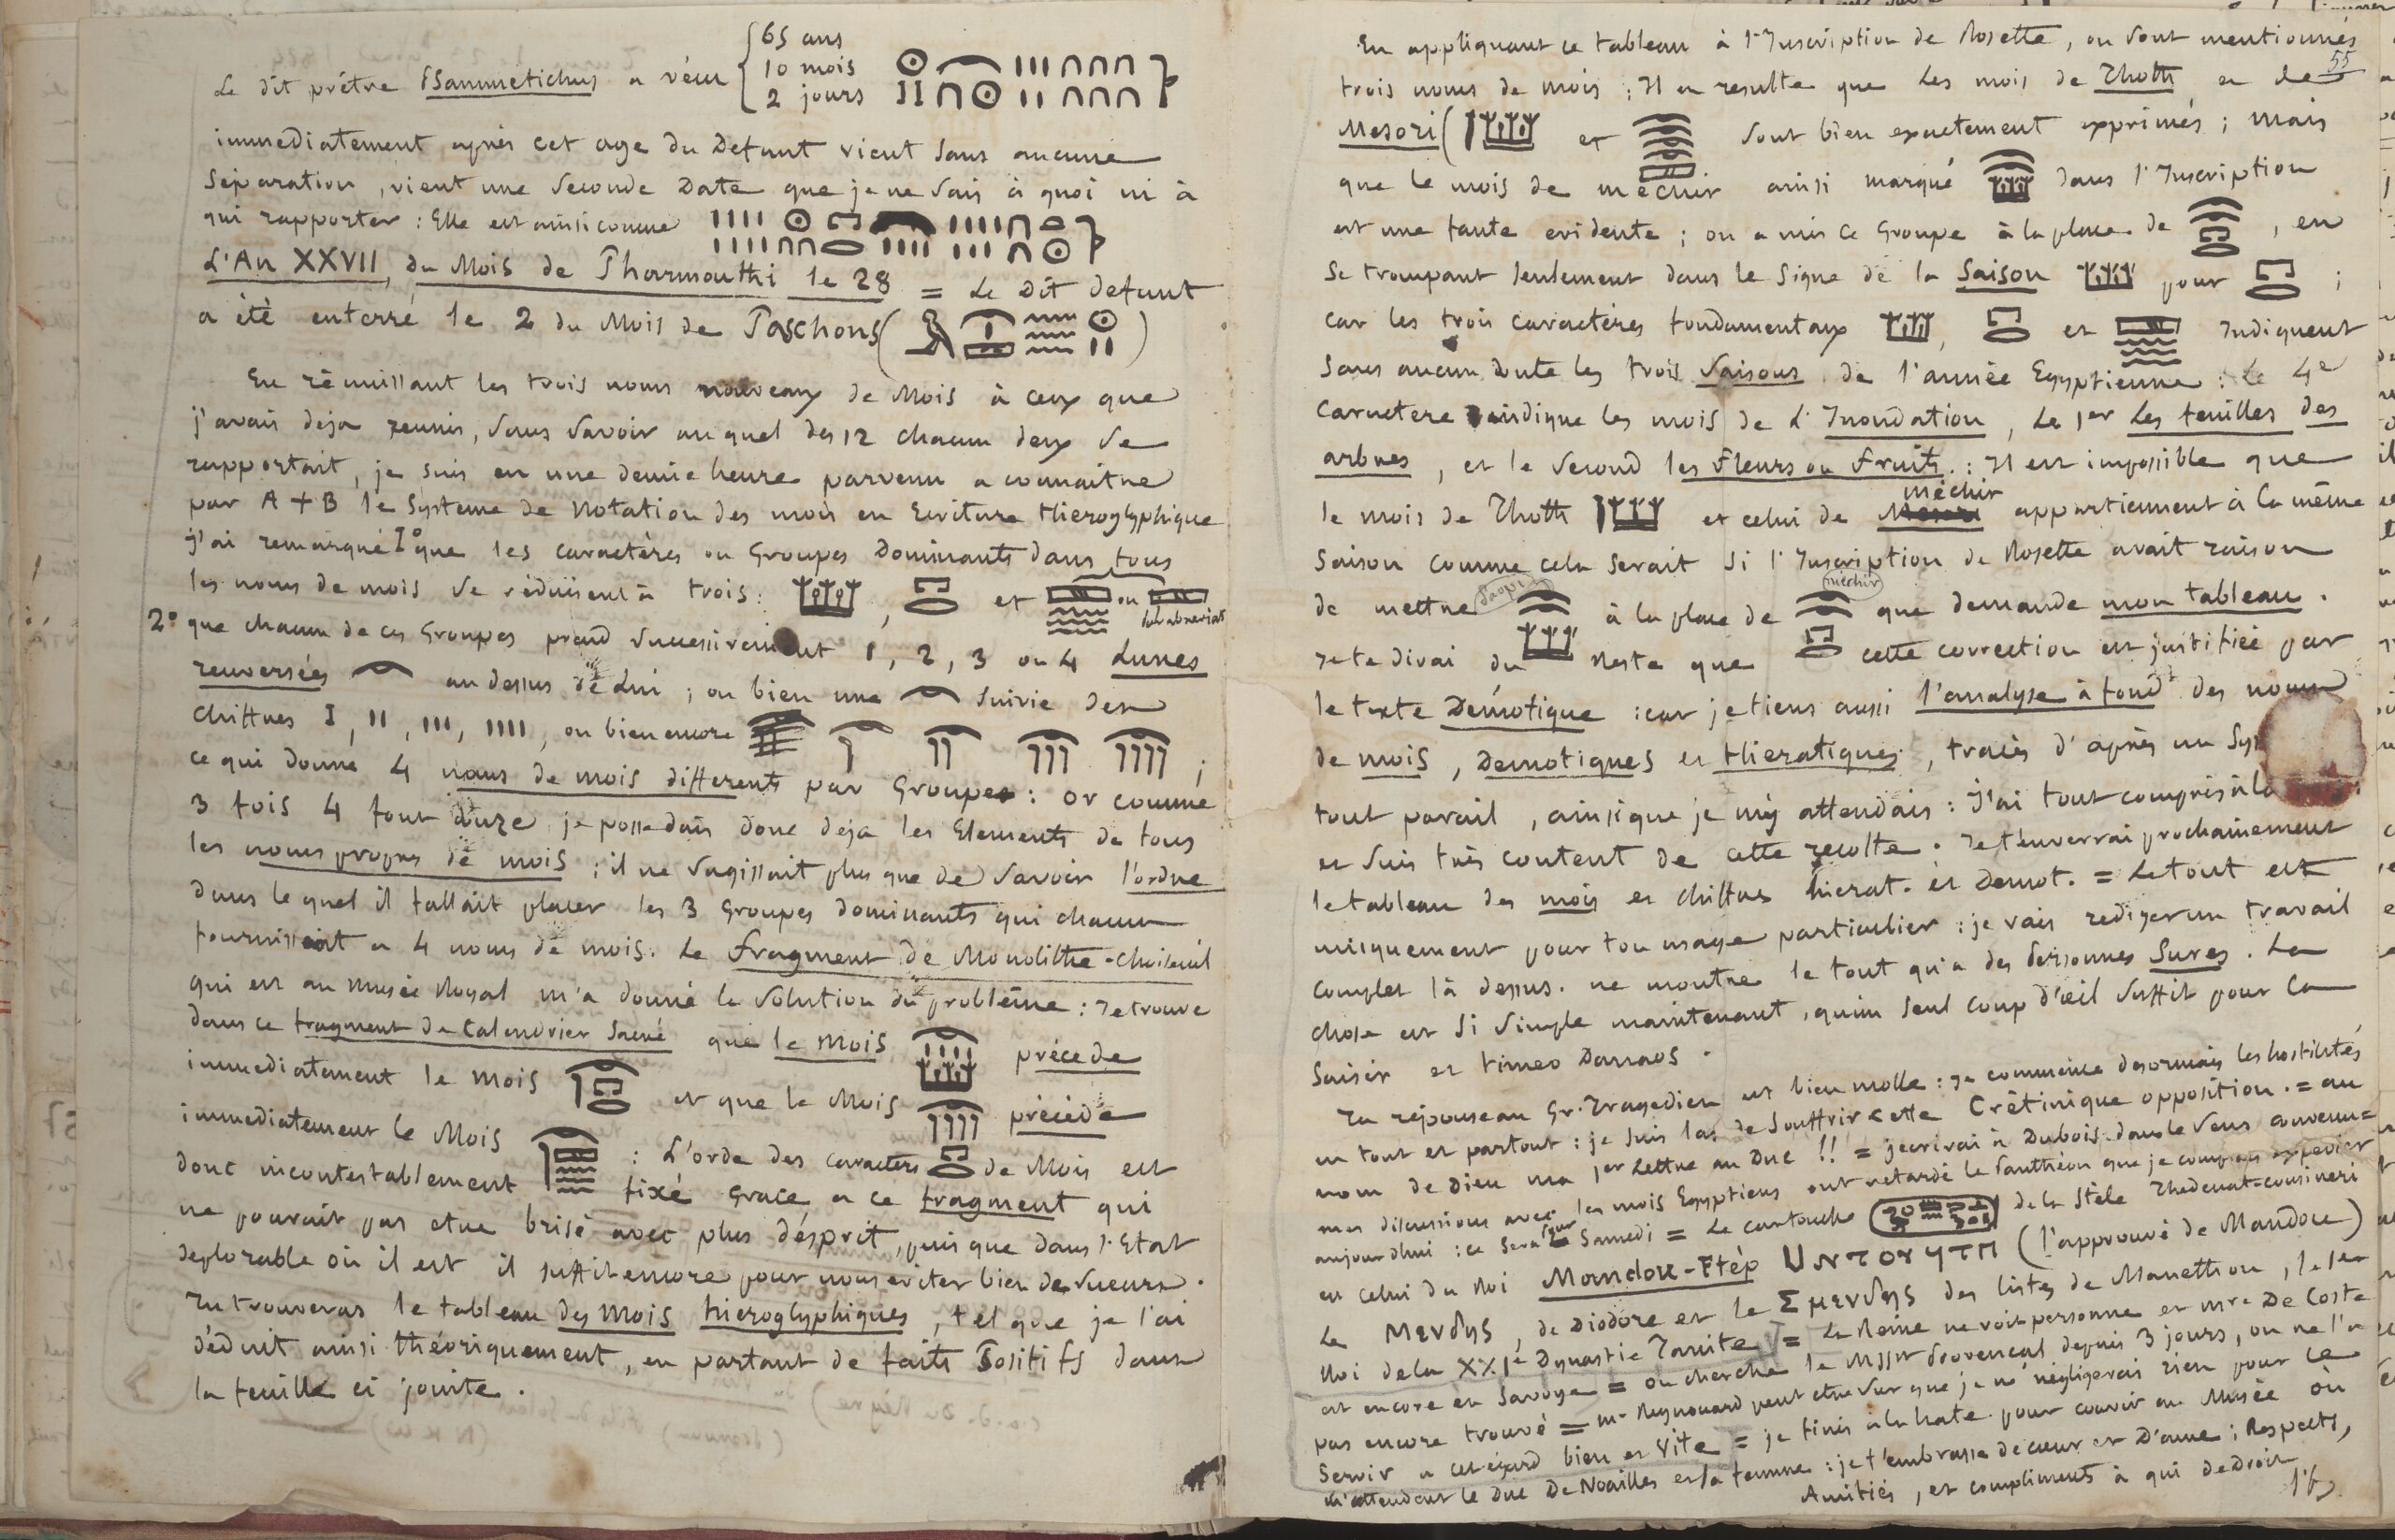 65 ans
Le dit prêtre Psammetichus a vécu 10 mois
2 jours
immediatement après cet age du Defunt vient sans aucune
séparation, vient une seconde Date que je ne sais à quoi ni à
qui rapporter : Elle est ainsi conçue
L'An XXVII, du Mois de Pharmouthi le 28 = Le Dit defunt
a été enterré le 2 du Mois de Paschons ( )
En réunissant les trois noms nouveaux de Mois à ceux que
j'avais deja reunis, sans savoir au quel des 12 chacun deux se
rapportait, je suis en une demie heure parvenu a connaitre
par A + B le Systeme de Notation des mois en Ecriture Hieroglyphique
j'ai remarqué 1° que les caractères ou Groupes Dominants dans tous
les noms de mois se réduisent à trois : , et ou
2° que chacun de ces Groupes prend successivement 1, 2, 3 ou 4 Lunes
renversées au dessus de Lui ; ou bien une suivie des
chiffres I, II, III, IIII, ou bien encore ;
ce qui donne 4 noms de mois differents par Groupe : or comme
3 fois 4 font douze je possedais donc deja les Elements de tous
les noms propres de mois ; il ne s'agissait plus que de savoir l'ordre
dans le quel il fallait placer les 3 Groupes dominants qui chacun
fournissait a 4 noms de mois. Le fragment de Monolithe-Choiseuil
qui est au Musée Royal m'a donné la solution du problême : Je trouve
dans ce fragment de Calendrier Sacré que le Mois précede
immediatement le Mois et que le Mois précède
immediatement le Mois : L'orde des caracters de Mois est
donc incontestablement fixé Grace a ce fragment qui
ne pouvait pas etre brisé avec plus d'ésprit, puis que dans l'Etat
deplorable où il est il suffit encore pour nous eviter bien de sueurs.
Tu trouveras le tableau des Mois hieroglyphiques, tel que je l'ai
déduit ainsi théoriquement, en partant de faits Positifs dans
la feuille ci jointe.
55
En appliquant ce tableau à l'Inscription de Rosette, ou sont mentionnés
trois noms de mois ; Il en resulte que les mois de Thoth et de
Mesori ( et sont bien exactement exprimés ; mais
que le mois de méchir ainsi marqué dans l'Inscription
est une faute evidente ; on a mis ce Groupe à la place de , en
se trompant seulement dans le signe de la Saison pour ;
car les trois caractères fondamentaux , et Indiquent
sans aucun doute les trois Saisons de l'année Egyptienne : Le 4e
caractere indique les mois de L'Inondation, Le 1er Les feuilles des
arbres, et le second les Fleurs ou Fruits. : Il est impossible que
méchir
le mois de Thoth et celui de appartiennent à la même
saison comme cela serait si l'Inscription de Rosette avait raison
paopi méchir
de mettre à la place de que demande mon tableau.
Je te dirai du reste que cette correction est justifiée par
le texte Démotique : car je tiens aussi l'analyse à fond des noms
de mois, Demotiques et Hieratiques, tracés d'après un Sys
tout pareil, ainsi que je m'y attendais : J'ai tout compris à la
et suis très content de cette recolte. Je t'enverrai prochainement
le tableau des mois et chiffres hierat. et Demot. = Le tout est
uniquement pour ton usage particulier : je vais rediger un travail
complet là dessus. ne montre le tout qu'a des Personnes Sures. La
chose est si simple maintenant, qu'un seul coup d'œil suffit pour la
saisir et timeo Danaos.
Ta réponse au Gr. Tragedien est bien molle : Je commence desormais les hostilités
en tout et partout : je suis las de souffrir cette Crétinique opposition. = au
nom de Dieu ma 1er Lettre au Duc !! = j'ecrirai à Dubois dans le sens convenu =
mes discussions avec les mois Egyptiens ont retardé le Panthéon que je comptais expedier
aujourdhui : ce sera pour Samedi = Le cartouche de la Stèle Thedenat-cousineri
est celui du Roi Mandou-Ftèp (l'approuvé de Mandou)
Le Μενδης, de Diodore et le Σμενδης des listes de Manethon, le 1er
Roi de la XXIe Dynastie Tanite = La Reine ne voit personne et Mre De Coste
est encore en Savoye = on cherche le Msst Provencal depuis 3 jours, on ne l'a
pas encore trouvé = Mr Reynouard peut etre sur que je ne négligerai rien pour le
servir a cet égard bien et vite = je finis à la hate pour courir au Musée où
m'attendent le Duc De Noailles et sa femme : je t'embrasse de cœur et D'ame ; Respects,
Amitiés, et compliments à qui de Droit